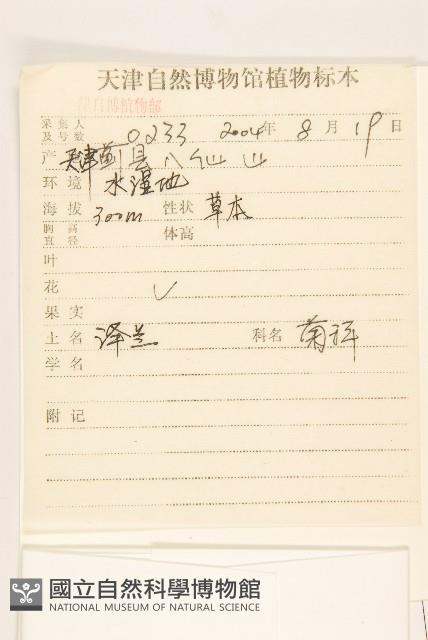 天津自然博物馆植物标本
津自博植物部
采集人及号数 0233 2004年 8月19日
产 天津蓟县八仙山
环境 水湿地
海拔 300m 性状 草本
胸高直径 体高
叶
花 ✓
果实
土名 泽兰 科名 菊科
学名
附记
國立自然科學博物館
NATIONAL MUSEUM OF NATURAL SCIENCE